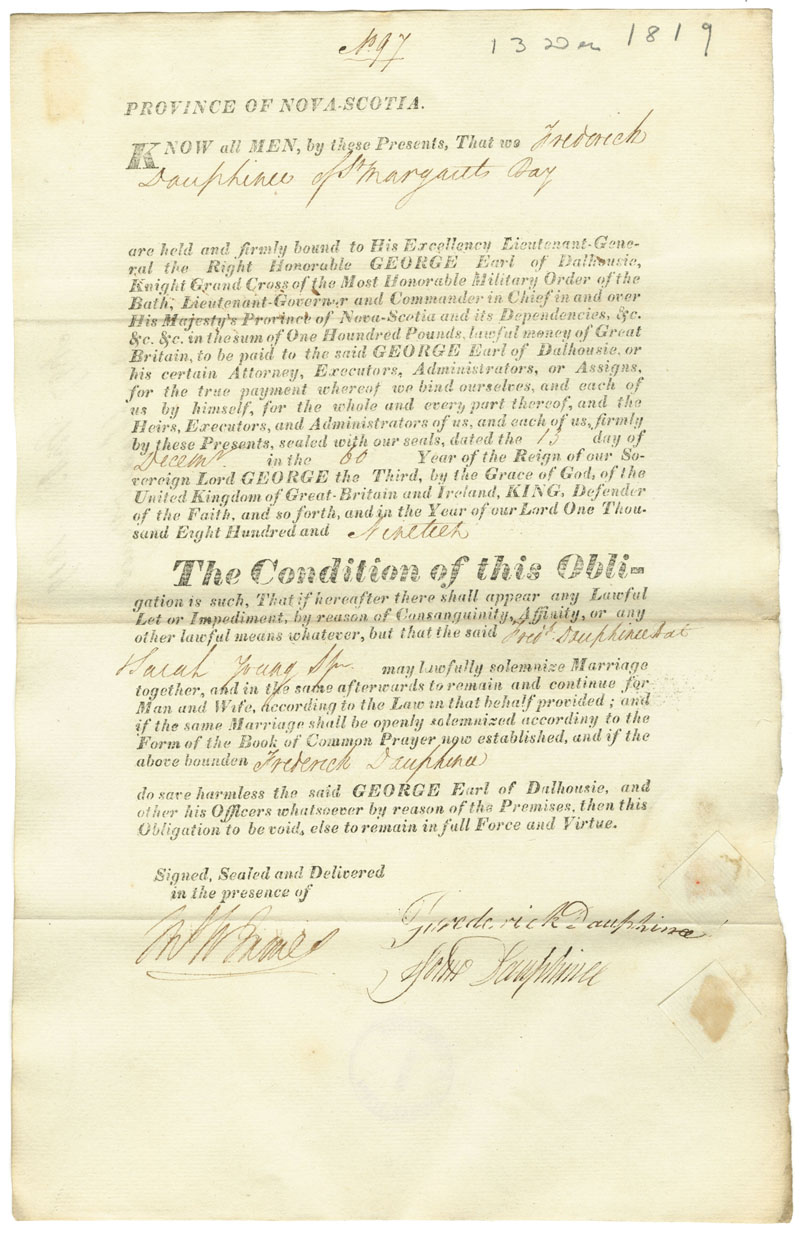 No. 97
13 Dec 1819
PROVINCE OF NOVA-SCOTIA.
KNOW all MEN, by these Presents, That we Frederick
Dauphinee of St Margarets Bay
are held and firmly bound to His Excellency Lieutenant-Gene-
ral the Right Honorable GEORGE Earl of Dalhousie,
Knight Grand Cross of the Most Honorable Military Order of the
Bath, Lieutenant-Governer and Commander in Chief in and over
His Majesty's Province of Nova-Scotia and its Dependencies, &c.
&c. &c. in the sum of One Houndred Pounds, lawful money of Great
Britain, to be paid to the said GEORGE Earl of Dalhousie, or
his certain Attorney, Executors, Administrators, or Assigns,
for the true payment whereof we bind ourselves, and each of
us by himself, for the whole and every part thereof, and the
Heirs, Executors, and Administrators of us, and each of us, firmly
by these Presents, sealed with our seals, dated the 13 day of
Decemr. in the 60 Year of the Reign of our So-
vereign Lord GEORGE the Third, by the Grace of God, of the
United Kingdom of Great-Britain and Ireland, KING, Defender
of the Faith, and so forth, and in the Year of our Lord One Thou-
sand Eight Hundred and Nineteen
The Condition of this Obli-
gation is such, That if hereafter there shall appear any Lawful
Let or Impediment, by reason of Consanguinity, Affinity, or any
other lawful means whatever, but that the said Fredk. Dauphinee
Sarah Young Spr may lawfully solemnize Marriage
together, and in the same afterwards to remain and continue for
Man and Wife, according to the Law in that behalf provided; and
if the same Marriage shall be openly solemnized accordiny to the
Form of the Book of Common Prayer now established, and if the
above bounden Frederick Dauphinee
do save harmless the said GEORGE Earl of Dalhousie, and
other his Officers whatsoever by reason of the Premises, then this
Obligation to be void, else to remain in full Force and Virtue.
Signed, Sealed and Delivered
in the presence of
Frederick Dauphinee
James
John Dauphinee